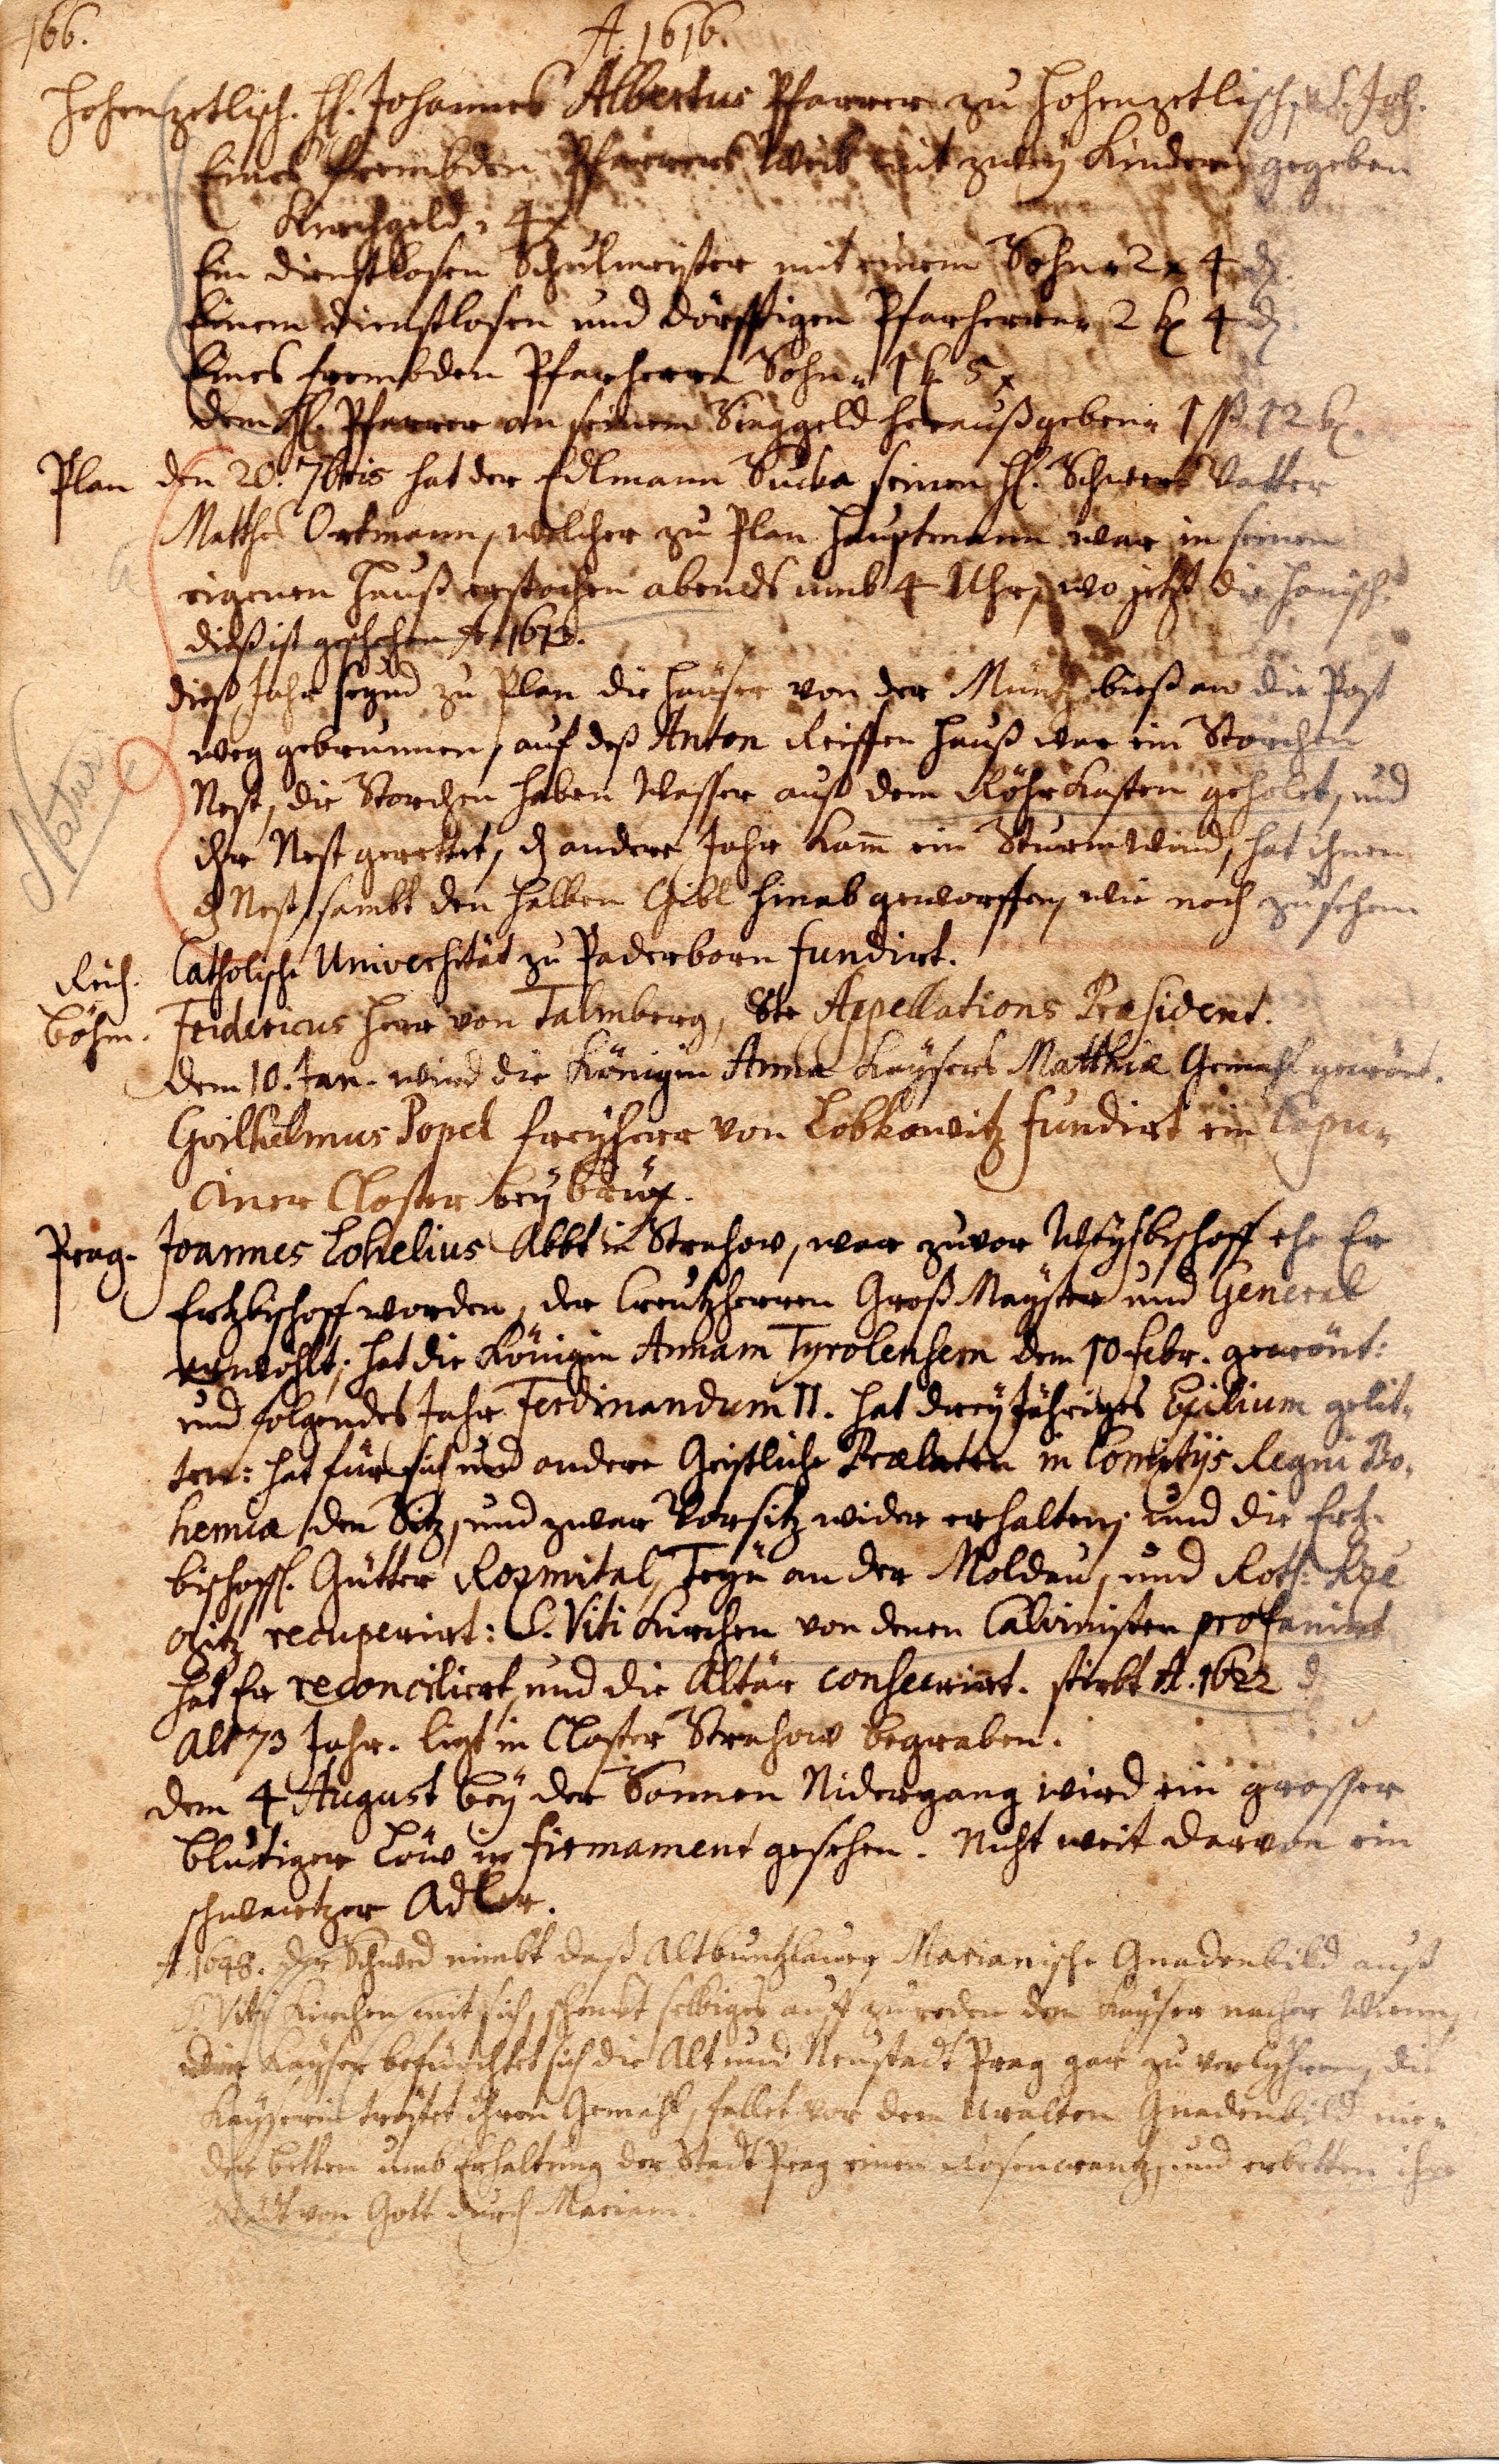 166.
A. 1616.
Hohenzetlisch. H. Johannes Albertus Pfarrer zu Hohenzetlisch, Joh.
Eines frembden Pfarrers Weib mit zweÿ Kindern gegeben
Kirchgeld. 4 x
Ein dienstlosen Schulmeister mit einem Sohn 2 x 4 d.
Einem dienstlosen und dörfftigen Pfarherrn 2 k 4 d.
Eines frembden Pfarherrn Sohn 1 k. 5 x
dem H. Pfarrer an seinem Singgeld heraußgeben 1 ß 12 k.
Plan den 20. 7bris hat der Edlmann Sucka seinen H. Schwer Vatter
Matthes Ortmann, welcher zu Plan Hauptmann war in seinen
eigenen Hauß erstochen abends umb 4 Uhr, wo jetzt die Hanisch.
diß ist geschehen A. 1613.
Natur.
dieß Jahr seynd zu Plan die Häuser von der Müntz bieß an die Post
weg gebrunnen, auf deß Anton Reiffen Hauß war ein Storchen
Nest, die Storchen haben Wasser auß dem Röhrkasten geholet, und
ihr Nest gerettet, dz andere Jahr kam ein Sturmwind, hat ihnen
dz Nest sambt den halben Gibl hinab geworffen, wie noch zusehen
Reich. Catholische Universität zu Paderborn fundirt.
Böhm. Fridericus Herr von Talmberg, 8te Appellations Præsident.
dem 10. Jan. wird die Königin Anna Kaÿsers Matthiæ Gemahl gecrönt.
Guilhelmus Popel freÿherr von Lobkowitz fundirt ein Capu-
ciner Closter beÿ brüx.
Prag. Joannes Lohelius Abbt in Strahow, war zuvor Weÿhbischoff ehe Er
Ertzbischoff worden, der Creutzherren Groß Maÿster und General
erwöhlt; hat die Königin Annam Tyrolensem dem 10 Febr. gecrönt:
und folgendes Jahr Ferdinandum II. hat dreÿ Jähriges Exilium gelit-
ten: hat für sich und andere Geistliche Prælaten in Comitijs Regni Bo-
hemiæ den Sitz, und zwar Vorsitz wider erhalten; und die Ertz-
bischoffl. Gütter Rozmital, Teÿn an der Moldau, und Roth: Rze
czitz recuperirt: S. Viti Kirchen von denen Calvinisten profanirt
hat Er reconciliert, und die Altär consecrirt. stirbt A. 1622
Alt 73 Jahr. ligt in Closter Strahow begraben.
dem 4 August beÿ der Sonnen Nidergang wird ein grosser
blutiger Löw in Firmament gesehen. Nicht weit darvon ein
schwartzer Adler.
A. 1648. der Schwed nimbt daß Altbuntzlauer Marianische Gnadenbild auß
S. Viti Kirchen mit sich, schenckt selbiges auff zureden dem Kaÿser nacher Wienn,
der Kaÿser befürchtet sich die Alt und Neustadt Prag gar zu verlyhren, die
Kaÿserin tröstet ihren Gemahl, fallet vor dem Uralten Gnadenbild nie-
der betten umb Erhaltung der Stadt Prag einen Rosencrantz, und erbetten ihre
Stadt von Gott durch Mariam.